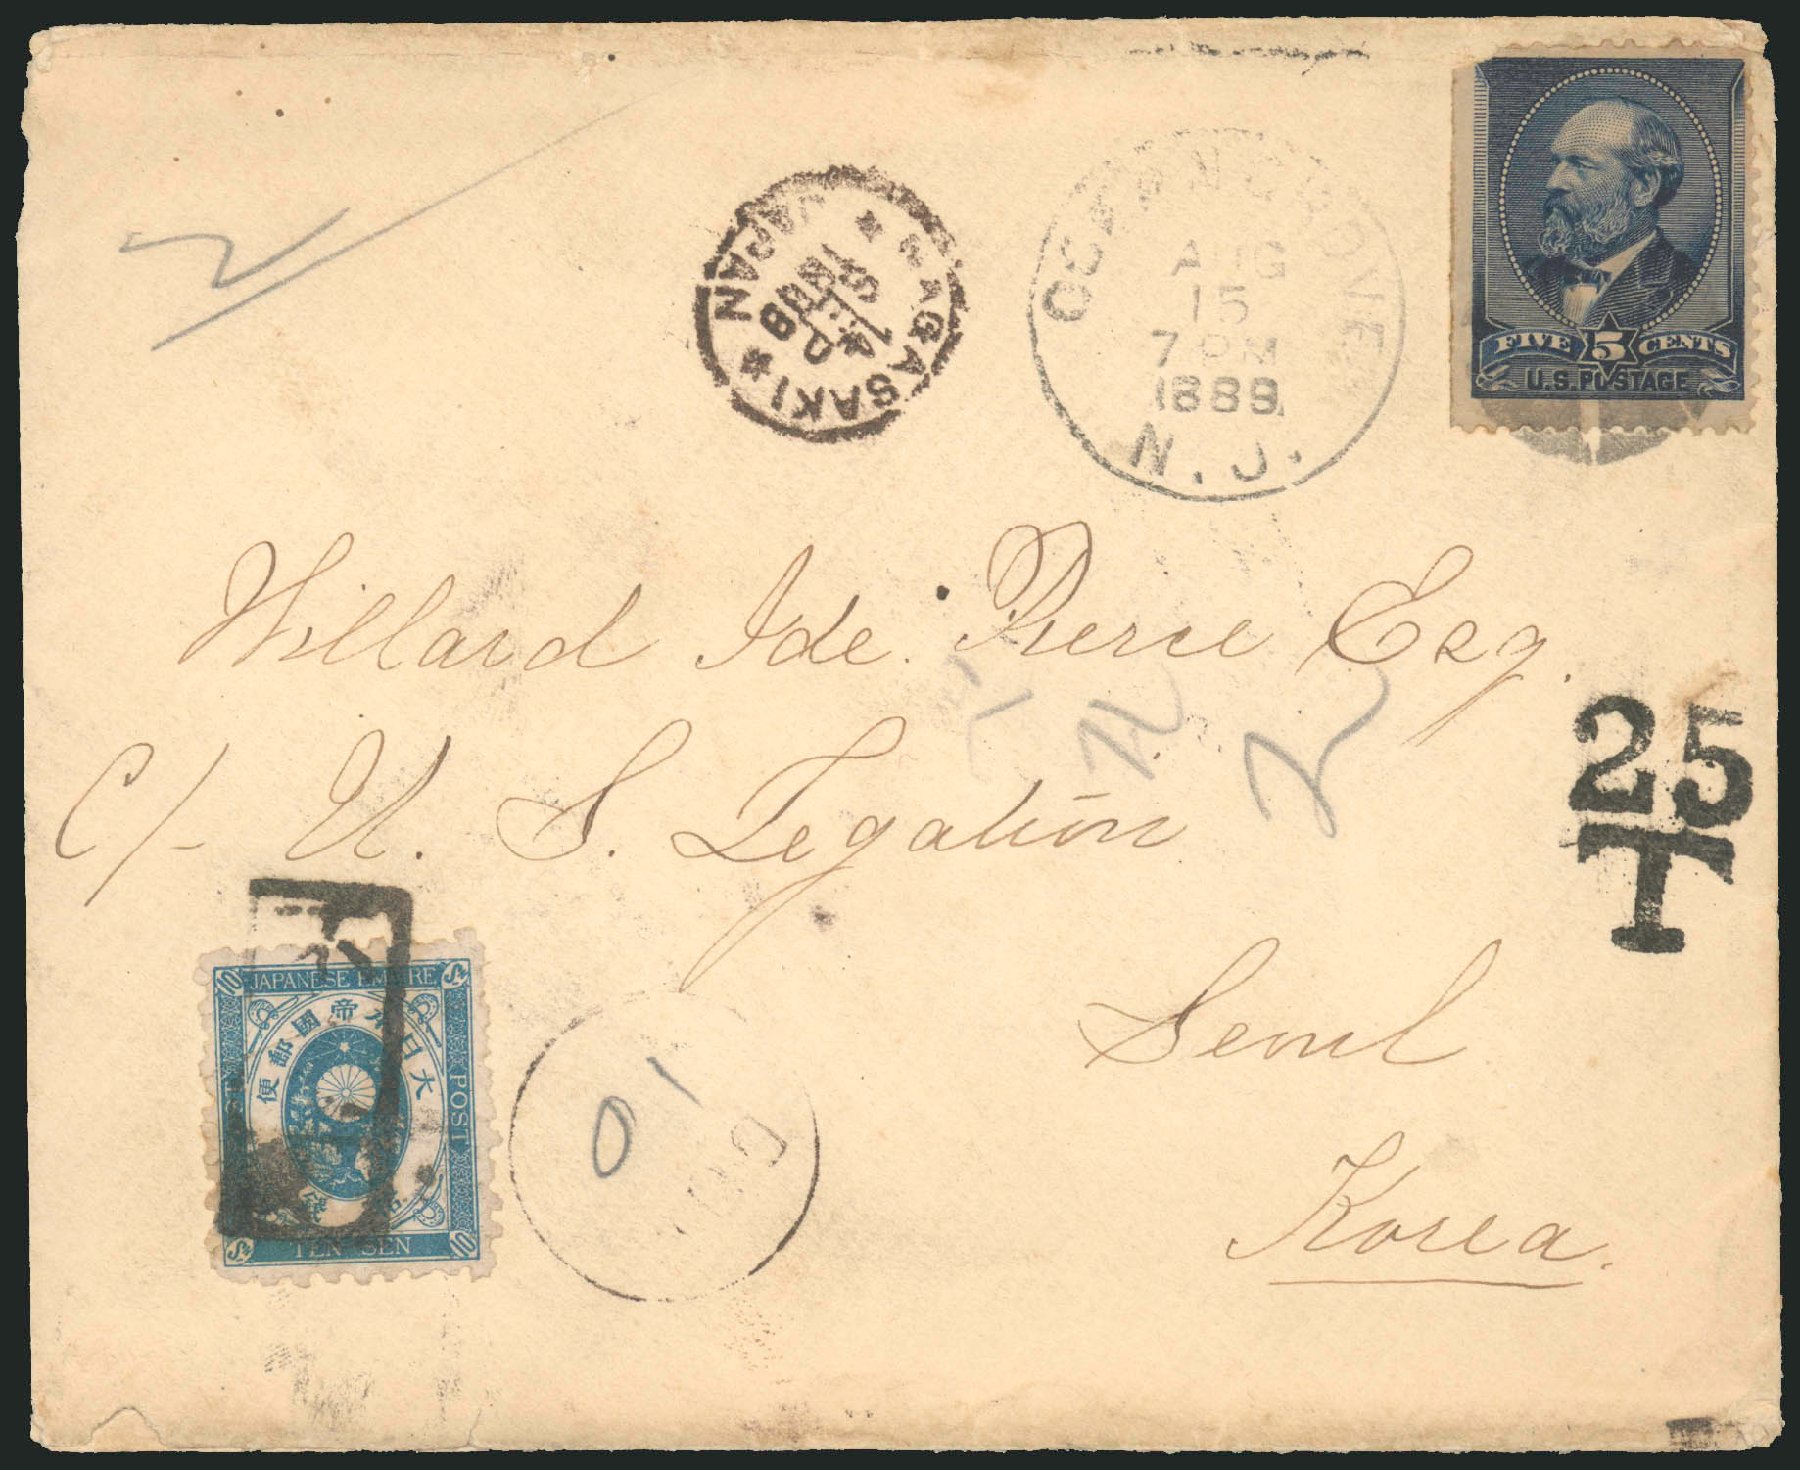 FIVE 5 CENTS
U.S. POSTAGE
OCEAN GROVE
AUG
15
7 PM
1889
N.J.
NAGASAKI
JAPAN
Willard Ide Pierce Esq.
C/- U. S. Legation
25
T
Seoul
Korea.
10 JAPANESE EMPIRE Sn
大日本帝國郵便
POST
Sn TEN SEN 10
10